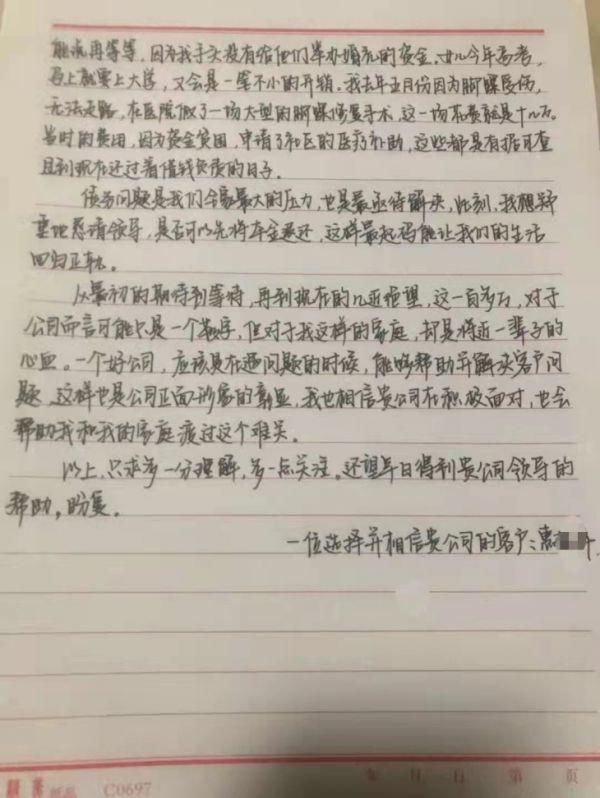 能求再等等，因为我手头没有给他们举办婚礼的资金。女儿今年高考，
马上就要上大学，又会是一笔不小的开销。我去年五月份因为脚踝受伤，
无法走路，在医院做了一场大型的脚踝修复手术，这一场花费就是十几万。
当时的费用，因为资金贫困，申请了社区的医疗补助，这些都是有据可查
且到现在还过着借钱负债的日子。
债务问题是我们全家最大的压力，也是最亟待解决，此刻，我想郑
重地恳请领导，是否可以先将本金退还，这样最起码能让我们的生活
回归正轨。
从最初的期待到等待，再到现在的几近绝望，这一百多万，对于
公司而言可能只是一个数字，但对于我这样的家庭，却是将近一辈子的
心血。一个好公司，应该是在遇问题的时候，能够帮助并解决客户问
题，这样也是公司正面形象的彰显，我也相信贵公司在积极面对，也会
帮助我和我的家庭度过这个难关。
以上，只求多一分理解，多一点关注。还望早日得到贵公司领导的
帮助，盼复。
一位选择并相信贵公司的客户：惠
C0697 年 月 日 第 页